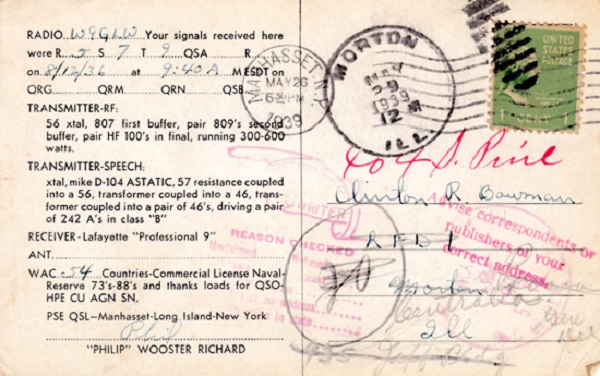 RADIO W9GLW Your signals received here
were R 5 S 7 T 9 QSA R
on 8/12/36 at 9:40 A M ESDT on
QRG QRM QRN QSB
TRANSMITTER-RF:
56 xtal, 807 first buffer, pair 809's second
buffer, pair HF 100's in final, running 300-600
watts.
TRANSMITTER-SPEECH:
xtal, mike D-104 ASTATIC, 57 resistance coupled
into a 56, transformer coupled into a 46, trans-
former coupled into a pair of 46's, driving a pair
of 242 A's in class "B"
RECEIVER-Lafayette "Professional 9"
ANT.
WAC-54 Countries-Commercial License Naval-
Reserve 73's-88's and thanks loads for QSO-
HPE CU AGN SN.
PSE QSL-Manhasset-Long Island-New York
Phil
"PHILIP" WOOSTER RICHARD
MANHASSET, N.Y.
MAY 26
6 PM
1939
MORTON
MAY
29
1939
12 M
ILL.
UNITED
STATES
POSTAGE
1 CENT 1
604 S. Pine
Clinton R. Bowman
RFD 1
Morton
Centralia
Ill
Ill
935
REASON CHECKED
Unclaimed
Advise correspondents or
publishers of your
correct address.